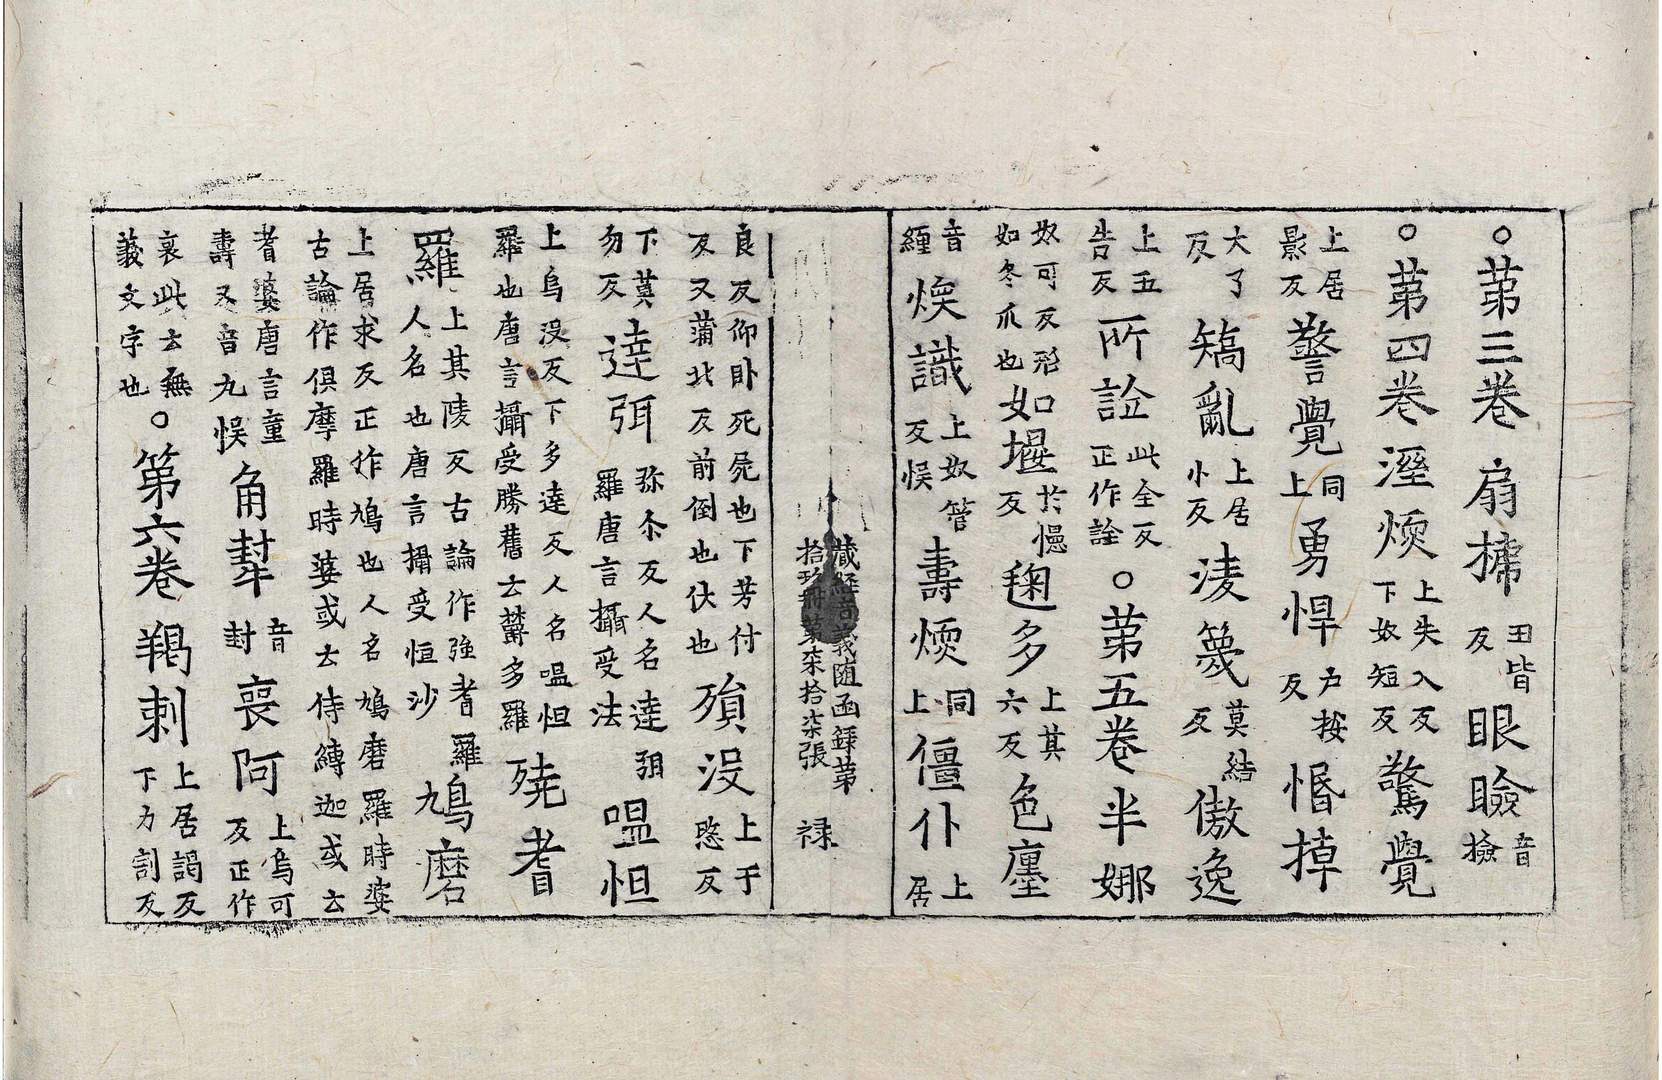 ○第三卷 扇㧙 丑皆反 眼瞼 音撿
○第四卷 溼煗 上失入反下奴短反 驚覺
上居影反 警覺 同上 勇悍 戶按反 惛掉
大了反 矯亂 上居小反 淩篾 莫結反 傲逸
上五告反 所詮 此全反正作詮 ○第五卷 半娜
奴可反如冬爪也 如堰 於㦥反 毱多 上其六反 色廛
音纏 煗識 上奴管反悮 壽煗 同上 僵仆 上居
良反仰卧死屍也下芳付反又蒲北反前倒也伏也 殞没 上于愍反
下莫勿反 達弭 弥尒反人名達弭羅唐言攝受法 嗢怛
上烏没反下多達反人名嗢怛羅也唐言攝受勝舊云欝多羅 殑耆
羅 上其陵反古論作強耆羅人名也唐言攝受恒沙 鳩磨
上居求反正作鳩也人名鳩磨羅時婆古論作俱摩羅時婆或云侍縛迦或云
耆婆唐言童壽又音九悮 角䎉 音封 喪阿 上烏可反正作
哀此云無義文字也 ○第六卷 羯剌 上居謁反下力割反
藏經音義随函録第
拾玖冊第柒拾柒張 禄